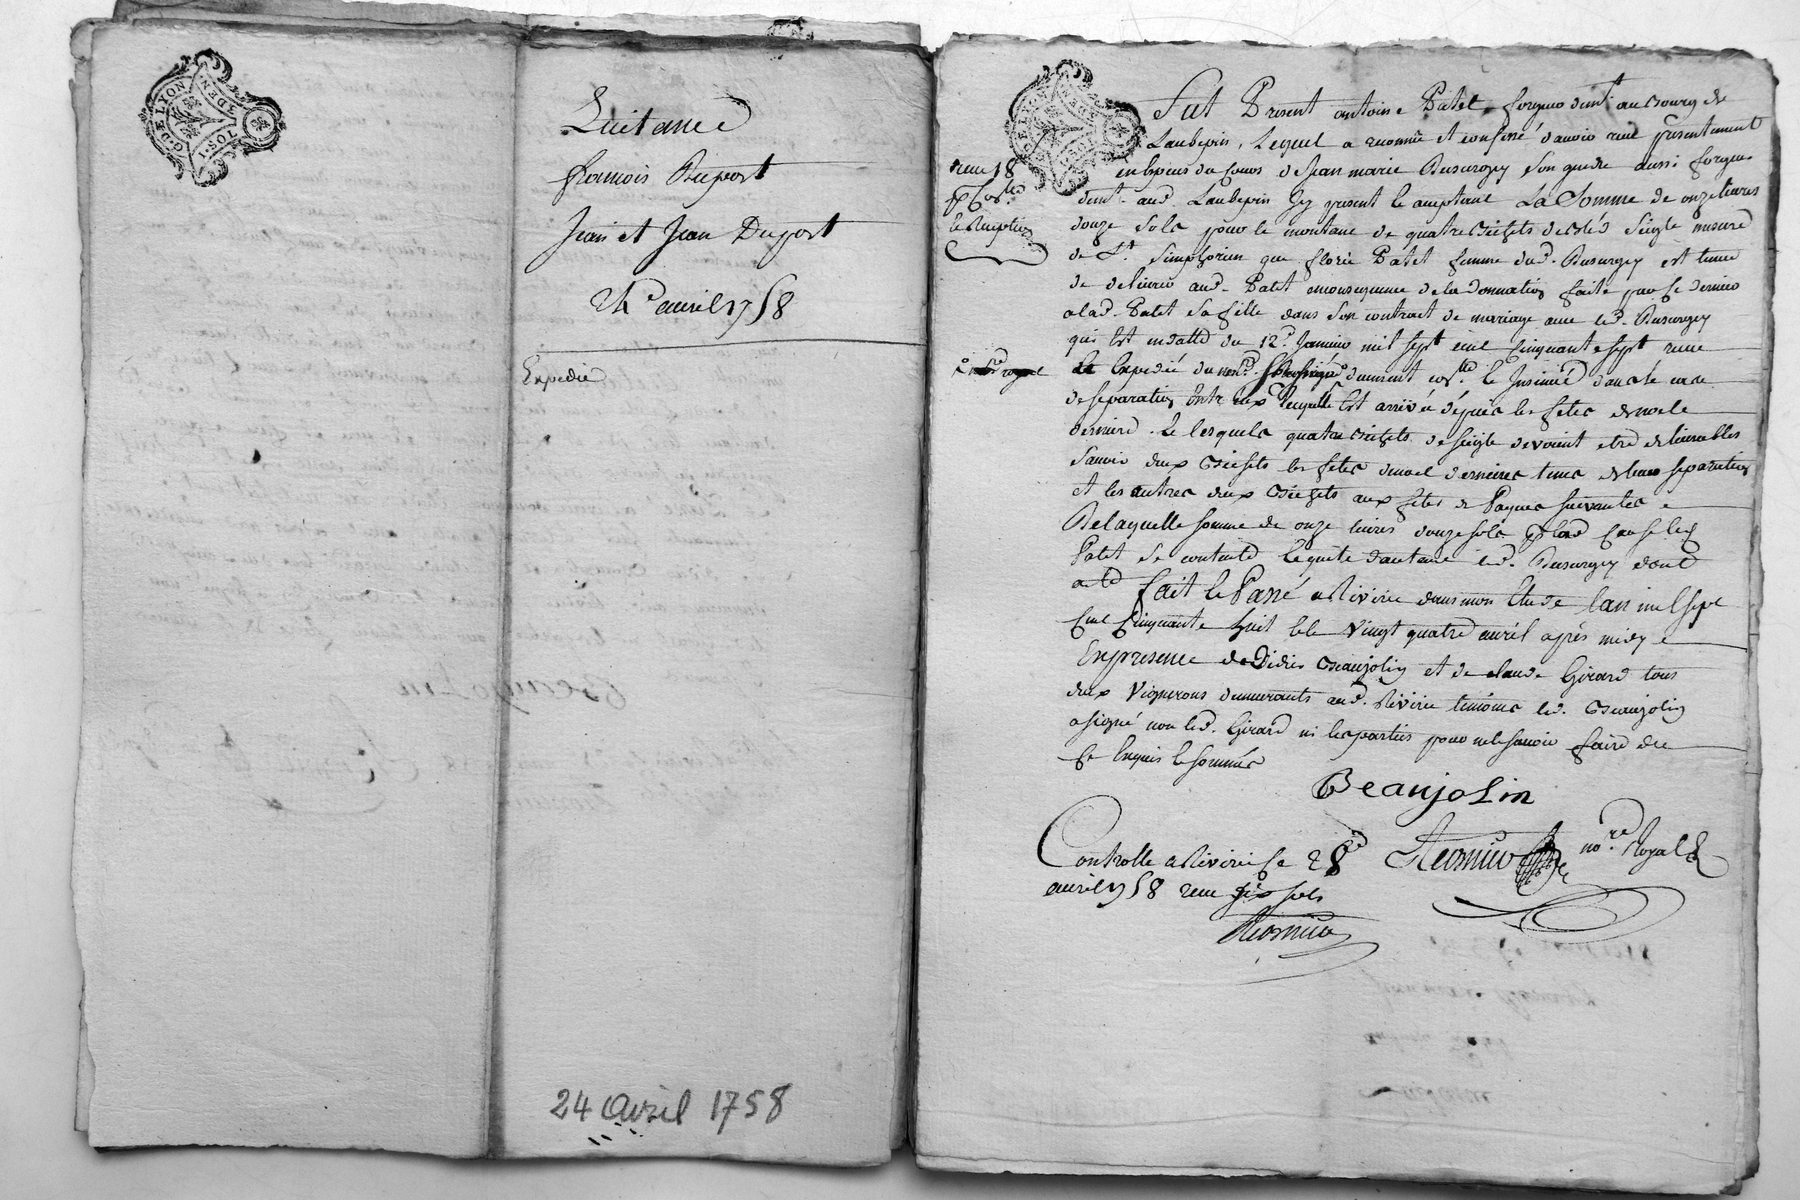 G. DE LYON
2 SOLS 3 DEN
Quitance
francois Duport
Jean et Jean Duport
24e avril 1758
Expedié
24 Avril 1758
G. DE LYON
Fut Present antoine Patet forgeur demt. au Bourg de
Laubepin, Lequel a reconnu et confessé d'avoir receu presentement
en especes du cours de Jean marie Busurgey son gendre aussi forgeur
demt. aud. Laubepin icy present et acceptant La Somme de onze livres
douze sols pour le montant de quatre bichets de bled seigle mesure
de St. Simphorien que florie Patet femme dud. Busurgey est tenue
de delivrer aud. Patet en consequence de la donnation faite par ce dernier
a lad. Patet sa fille dans son contract de mariage avec led. Busurgey
qui est en datte du 12e. Janvier mil sept cent cinquante sept receu
et expedié du nore. soussigné dument collé. et Insinué dans le cas de
de separation entre eux lequelle est arrivée depuis les fetes de noel
derniere. et lesquels quatre bichets de seigle devoient etre delivrables
scavoir deux bichets les fetes de noel dernieres tems de leur separation
et les autres deux bichets aux fetes de Paques suivantes
De laquelle somme de onze livres douze sols led
Patet se contente et quitte d'autant led. Busurgey dont
acte fait et Passé a Riverie dans mon etude l'an mil sept
cent cinquante huit et le vingt quatre avril après midy
En presence de Didier Beaujolin et de claude Girard tous
deux vignerons demeurants aud. Riverie temoins led. Beaujolin
a signé non led. Girard ni les parties pour ne le scavoir faire de
ce enquis et sommés
receu 18
le Reception
Beaujolin
nore. Royal
Controllé a Riverie ce 28e
avril 1758 receu six sols